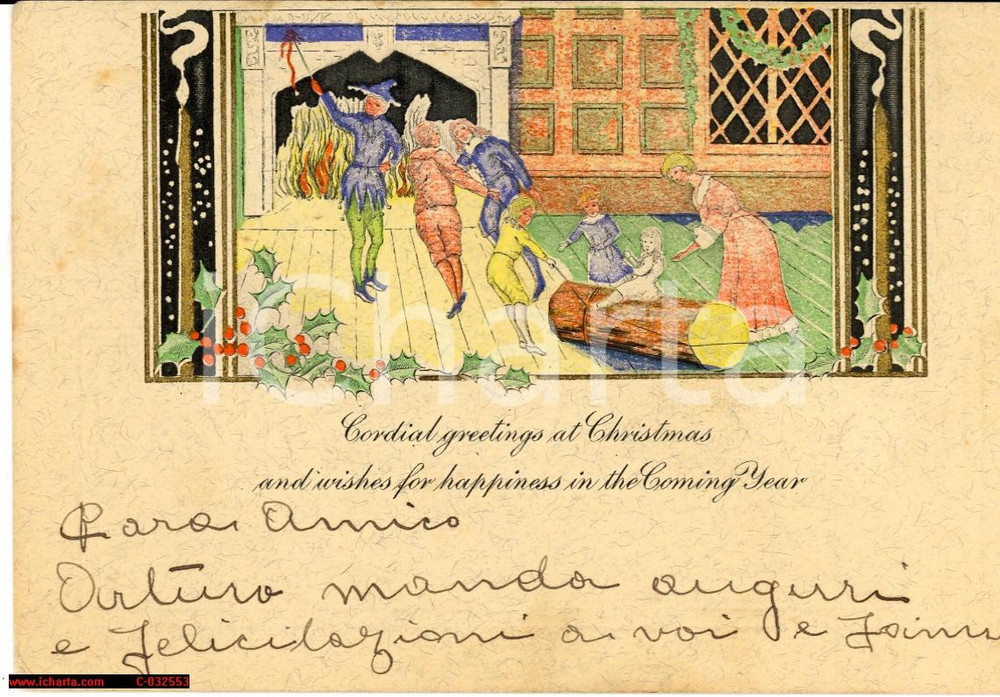 iCharta
Cordial greetings at Christmas
and wishes for happiness in the Coming Year
Caro Amico
Arturo manda auguri
e felicitazioni a voi e
www.icharta.com C-032553